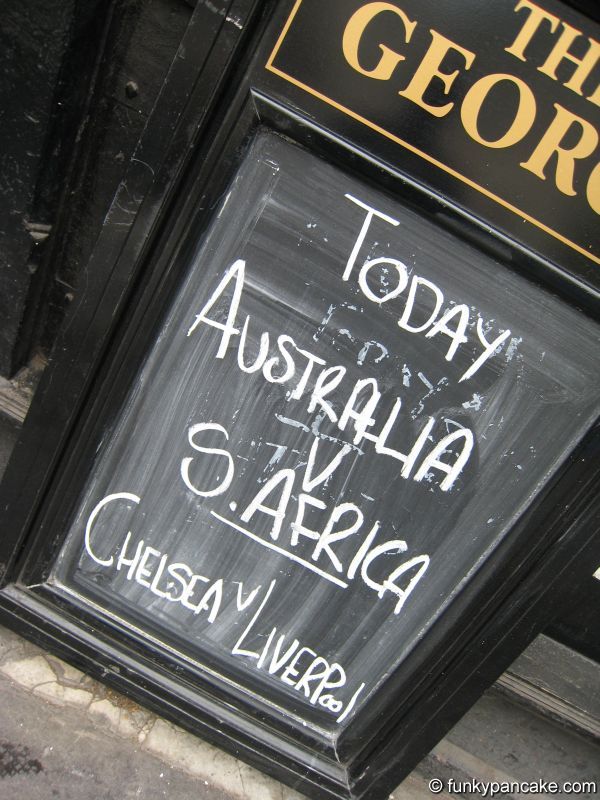 THE
GEOR
TODAY
AUSTRALIA
V
S. AFRICA
CHELSEA V LIVERPOOL
© funkypancake.com